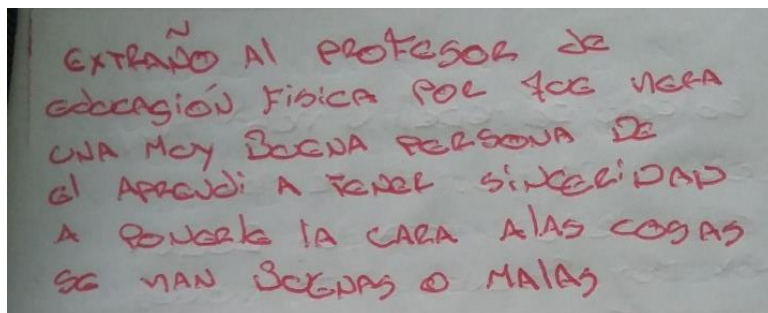 EXTRAÑO Al PROFESOR de
edUcasión Fisica POR 9UE viERA
UNA MUy BUENA PERSONA DE
el APRENdi A TENER SiNCERiDAD
A PONERle lA CARA AlAS COSAS
SE viAN BUENAS O MAlAS